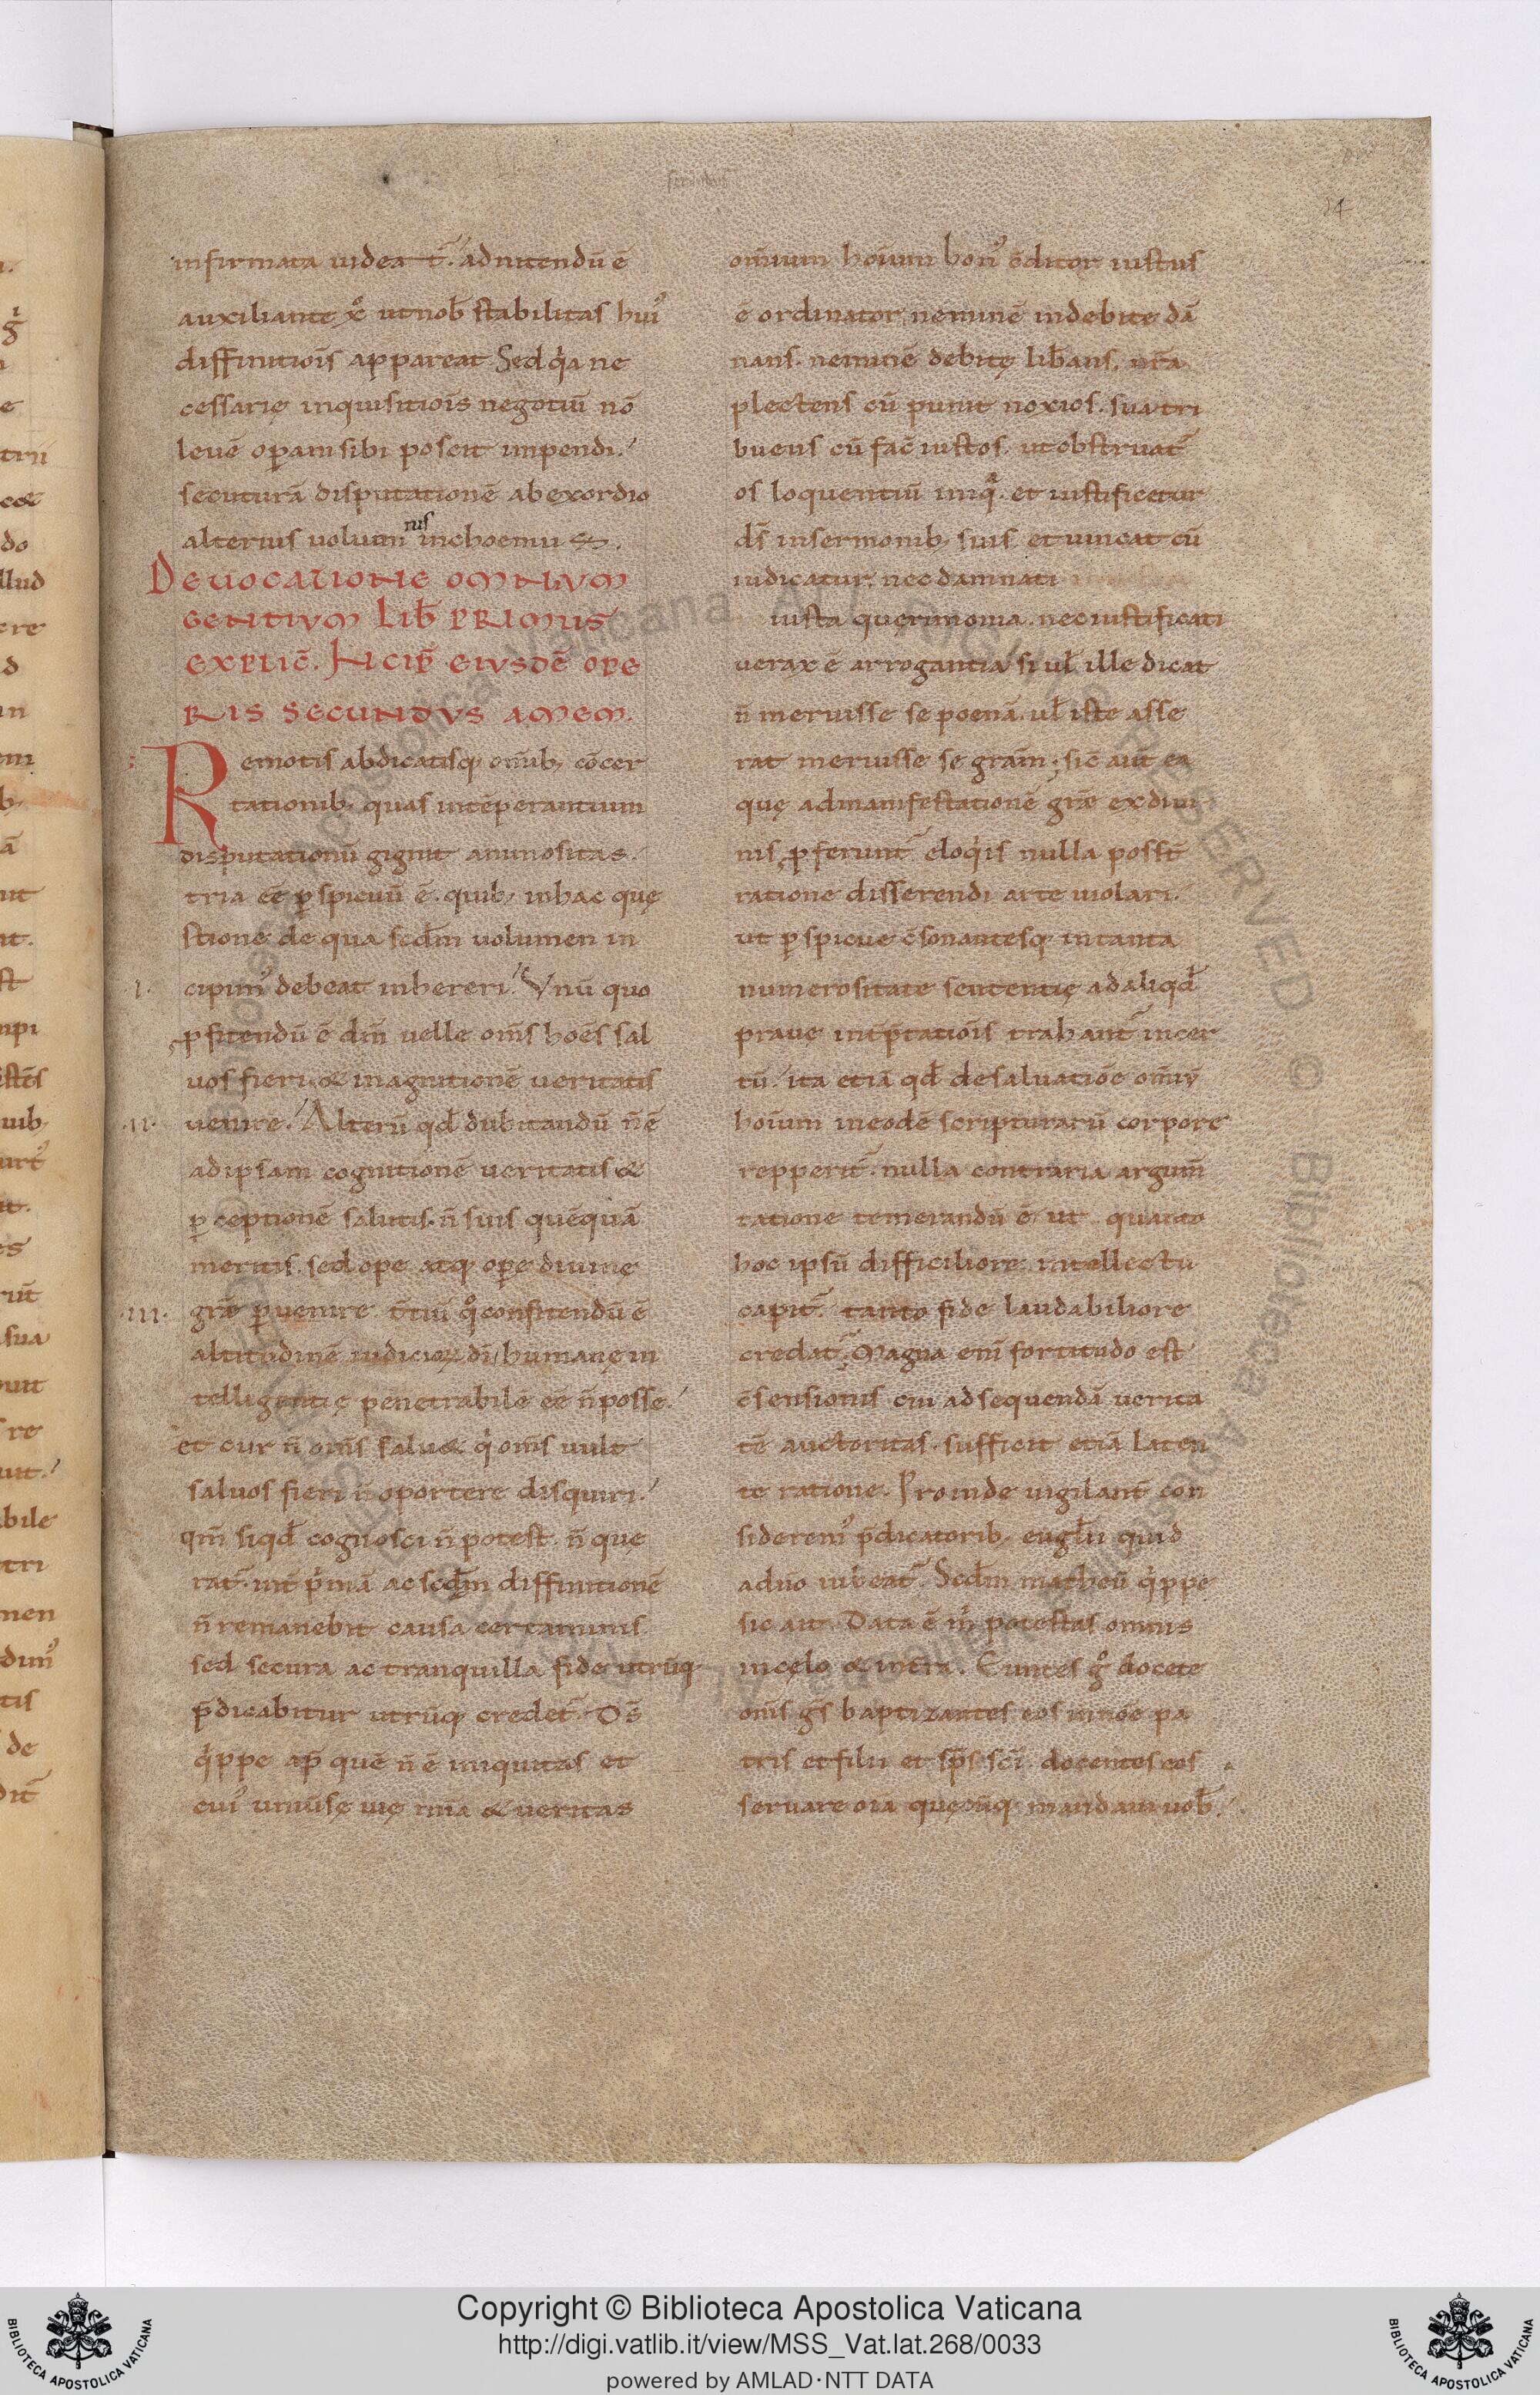 24
infirmata uideat᷑. adnitendū ē
auxiliante xp̄o ut nob̄ stabilitas huiꝰ
diffinitiōis appareat. Sed qͥa ne
cessarię inquisitiōis negotiū nō
leuē operam sibi poscit impendi.
secuturā disputationē ab exordio
alterius uolum nis inchoemus.
De uocatione omnium
gentium Lib̄ primus
explic̄. Incip̄ eiusdē ope
ris secundus amem.
Remotis abdicatisq; om̄ib; cōcer
tationib; quas intēperantium
disputationū gignit animositas.
tria eē ꝑspicuū ē. quib; in hac quę
stione de qua sed̄m uolumen in
·I· cipimꝰ debeat inhereri. Vnū quo
ꝓfitendū ē dm̄ uelle om̄s hoēs sal
uos fieri. & in agnitionē ueritatis
·II· uenire. Alterū qd̄ dubitandū n̄ ē
ad ipsam cognitionē ueritatis &
ꝑceptionē salutis. n̄ suis quēquā
meritis. sed ope atq; oꝑe diuine
·III· grę̄ ꝑuenire. t̄tiū qͦ confitendū ē
altitudinē iudicioꝝ dī humanę in
telligentię penetrabilē eē n̄ posse.
et cur n̄ om̄s saluet qͥ om̄s uult
saluos fieri n̄ oportere disquiri.
qm̄ si qd̄ cognosci n̄ potest. n̄ quę
rat᷑. int̄ pͥmā ac scd̄m diffinitionē
n̄ remanebit causa certaminis.
sed secura ac tranquilla fide utrūq;
p̄dicabitur utrūq; credet᷑. Ds̄
qͥppe ap̄ quē n̄ ē iniquitas et
cuiꝰ uniūsę uię mīa & ueritas
om̄ium hoīum bonꝰ c̄ditor iustus
ē ordinator, neminē indebite dā
nans. neminē debitę lib̄ans. nr̄a
plectens cū punit noxios. sua tri
buens cū fac̄ iustos. ut obstruat᷑
os loquentiū iniqͣ. et iustificetur
ds̄ in sermonib; suis. et uincat cū
iudicatur. nec damnati
iusta querimonia. nec iustificati
uerax ē arrogantia si ul̄ ille dicat
n̄ meruisse se poenā. ul̄ iste asse
rat meruisse se gram̄. sic̄ aut̄ ea
quę ad manifestationē grę̄ ex diui
nis ꝓferunt᷑ eloqͥis nulla posst̄
ratione disserendi arte uiolari.
ut ꝑspicue c̄sonantesq; in tanta
numerositate sententię ad aliqd̄
prauę int̄p̄tatiōis trahant᷑ incer
tū. ita etiā qd̄ de saluatiōe om̄iū
hoīum in eodē scripturarū corpore
repperit᷑. nulla contraria argum̄
tatione temerandū ē. ut quanto
hoc ipsū difficiliore intellectu
capit᷑. tanto fide laudabiliore
credat᷑. Magna eni fortitudo est
c̄sensionis cui ad sequendā uerita
tē auctoritas. sufficit etiā laten
te ratione. Proinde uigilant̄ con
sideremꝰ p̄dicatorib; eugl̄ii quid
a dn̄o iubeat᷑. Scd̄m matheū qͥppe
sic ait. Data ē mͥ potestas omnis
in cęlo & in t̄ra. Euntes gͦ docete
om̄s gs̄ baptizantes eos in noē pa
tris et filii et sp̄s sc̄i. docentes eos
seruare oīa quęcūq; mandaui uob̄.
BIBLIOTECA APOSTOLICA VATICANA
Copyright © Biblioteca Apostolica Vaticana
http://digi.vatlib.it/view/MSS_Vat.lat.268/0033
powered by AMLAD·NTT DATA
BIBLIOTECA APOSTOLICA VATICANA